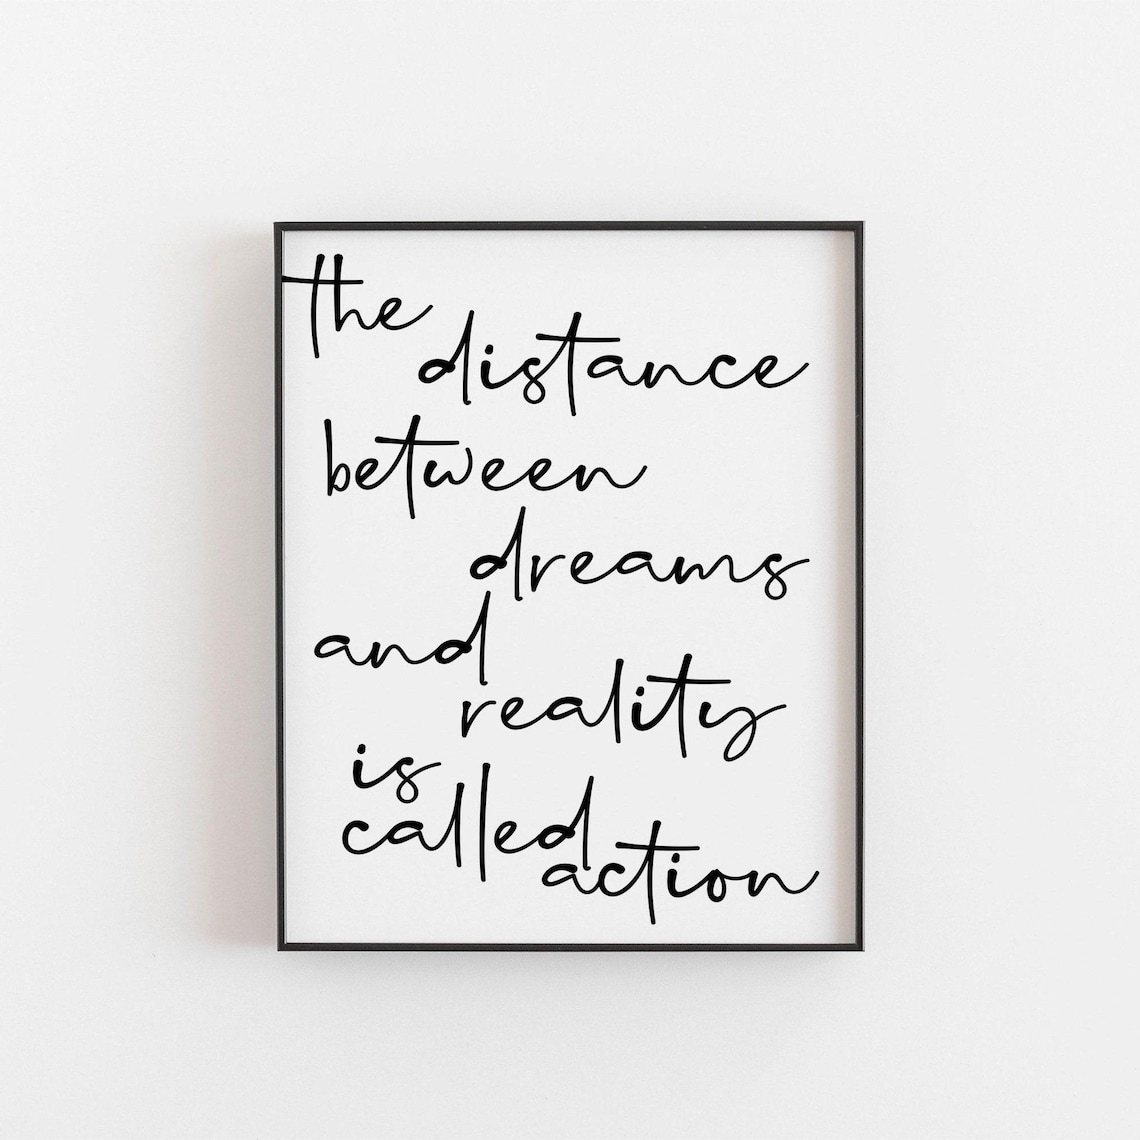 the
distance
between
dreams
and
reality
is
called
action